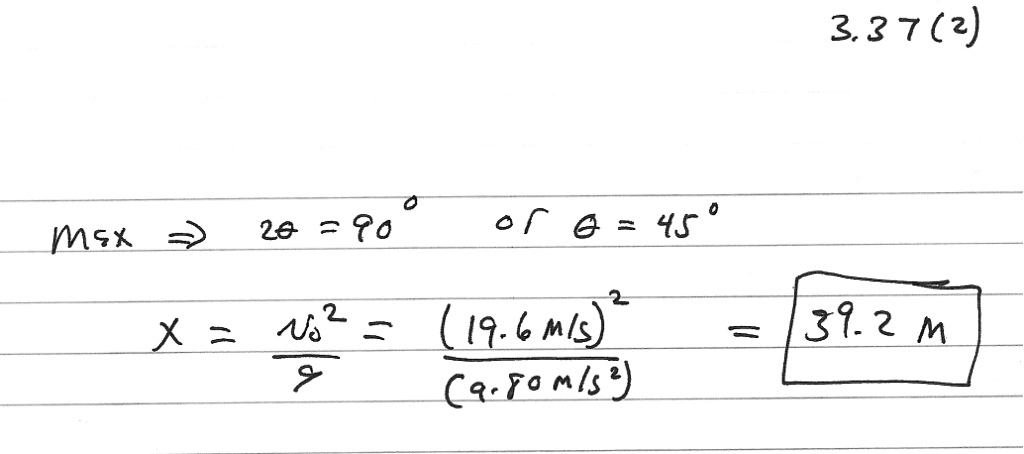 3.37(2)
max ⇒ 2θ = 90° or θ = 45°
x = v₀²/g = (19.6 m/s)²/(9.80 m/s²) = 39.2 m